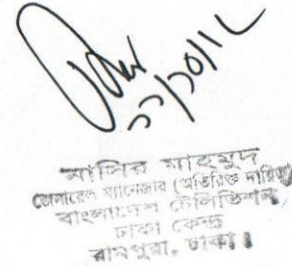 ২২/১০/১২
মাহমুদ
জেনারেল ম্যানেজার (অতিরিক্ত দায়িত্ব)
বাংলাদেশ টেলিভিশন
ঢাকা কেন্দ্র
রামপুরা, ঢাকা।